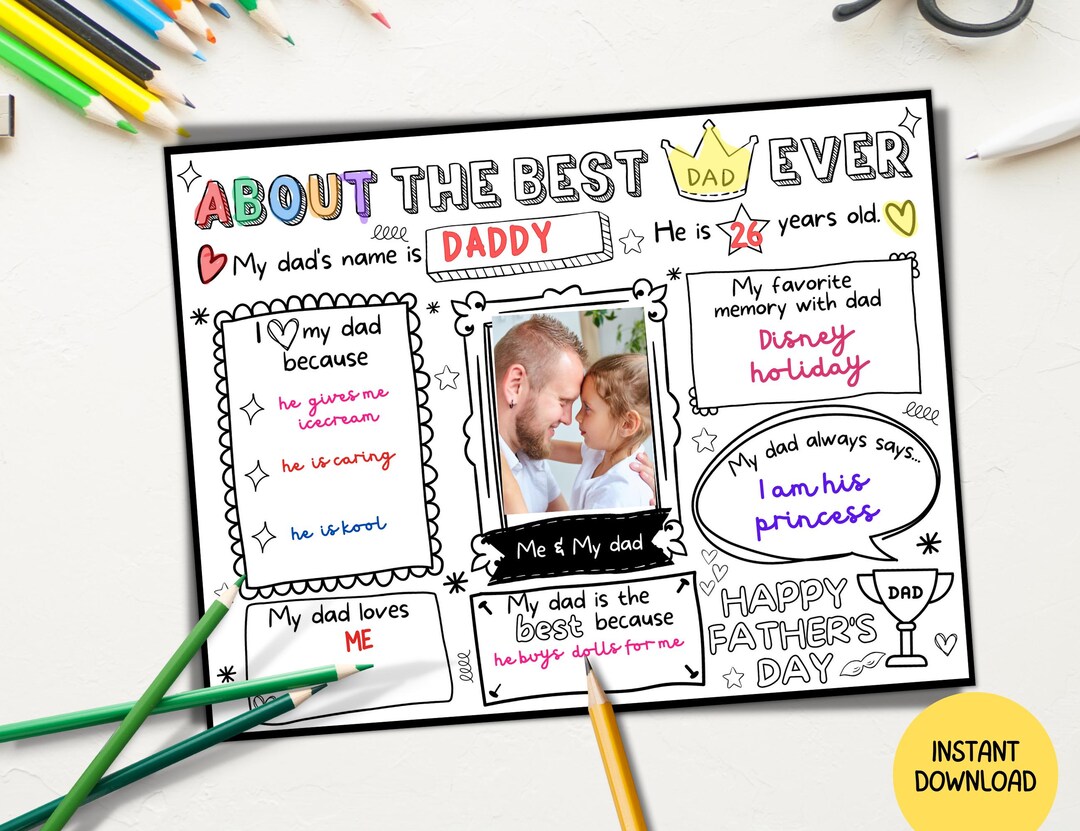 ABOUT THE BEST DAD EVER
My dad's name is DADDY
He is 26 years old.
I my dad
because
he gives me
icecream
he is caring
he is kool
Me & My dad
My favorite
memory with dad
Disney
holiday
My dad always says...
I am his
princess
My dad loves
ME
My dad is the
best because
he buys dolls for me
HAPPY
FATHER'S
DAY
DAD
INSTANT
DOWNLOAD